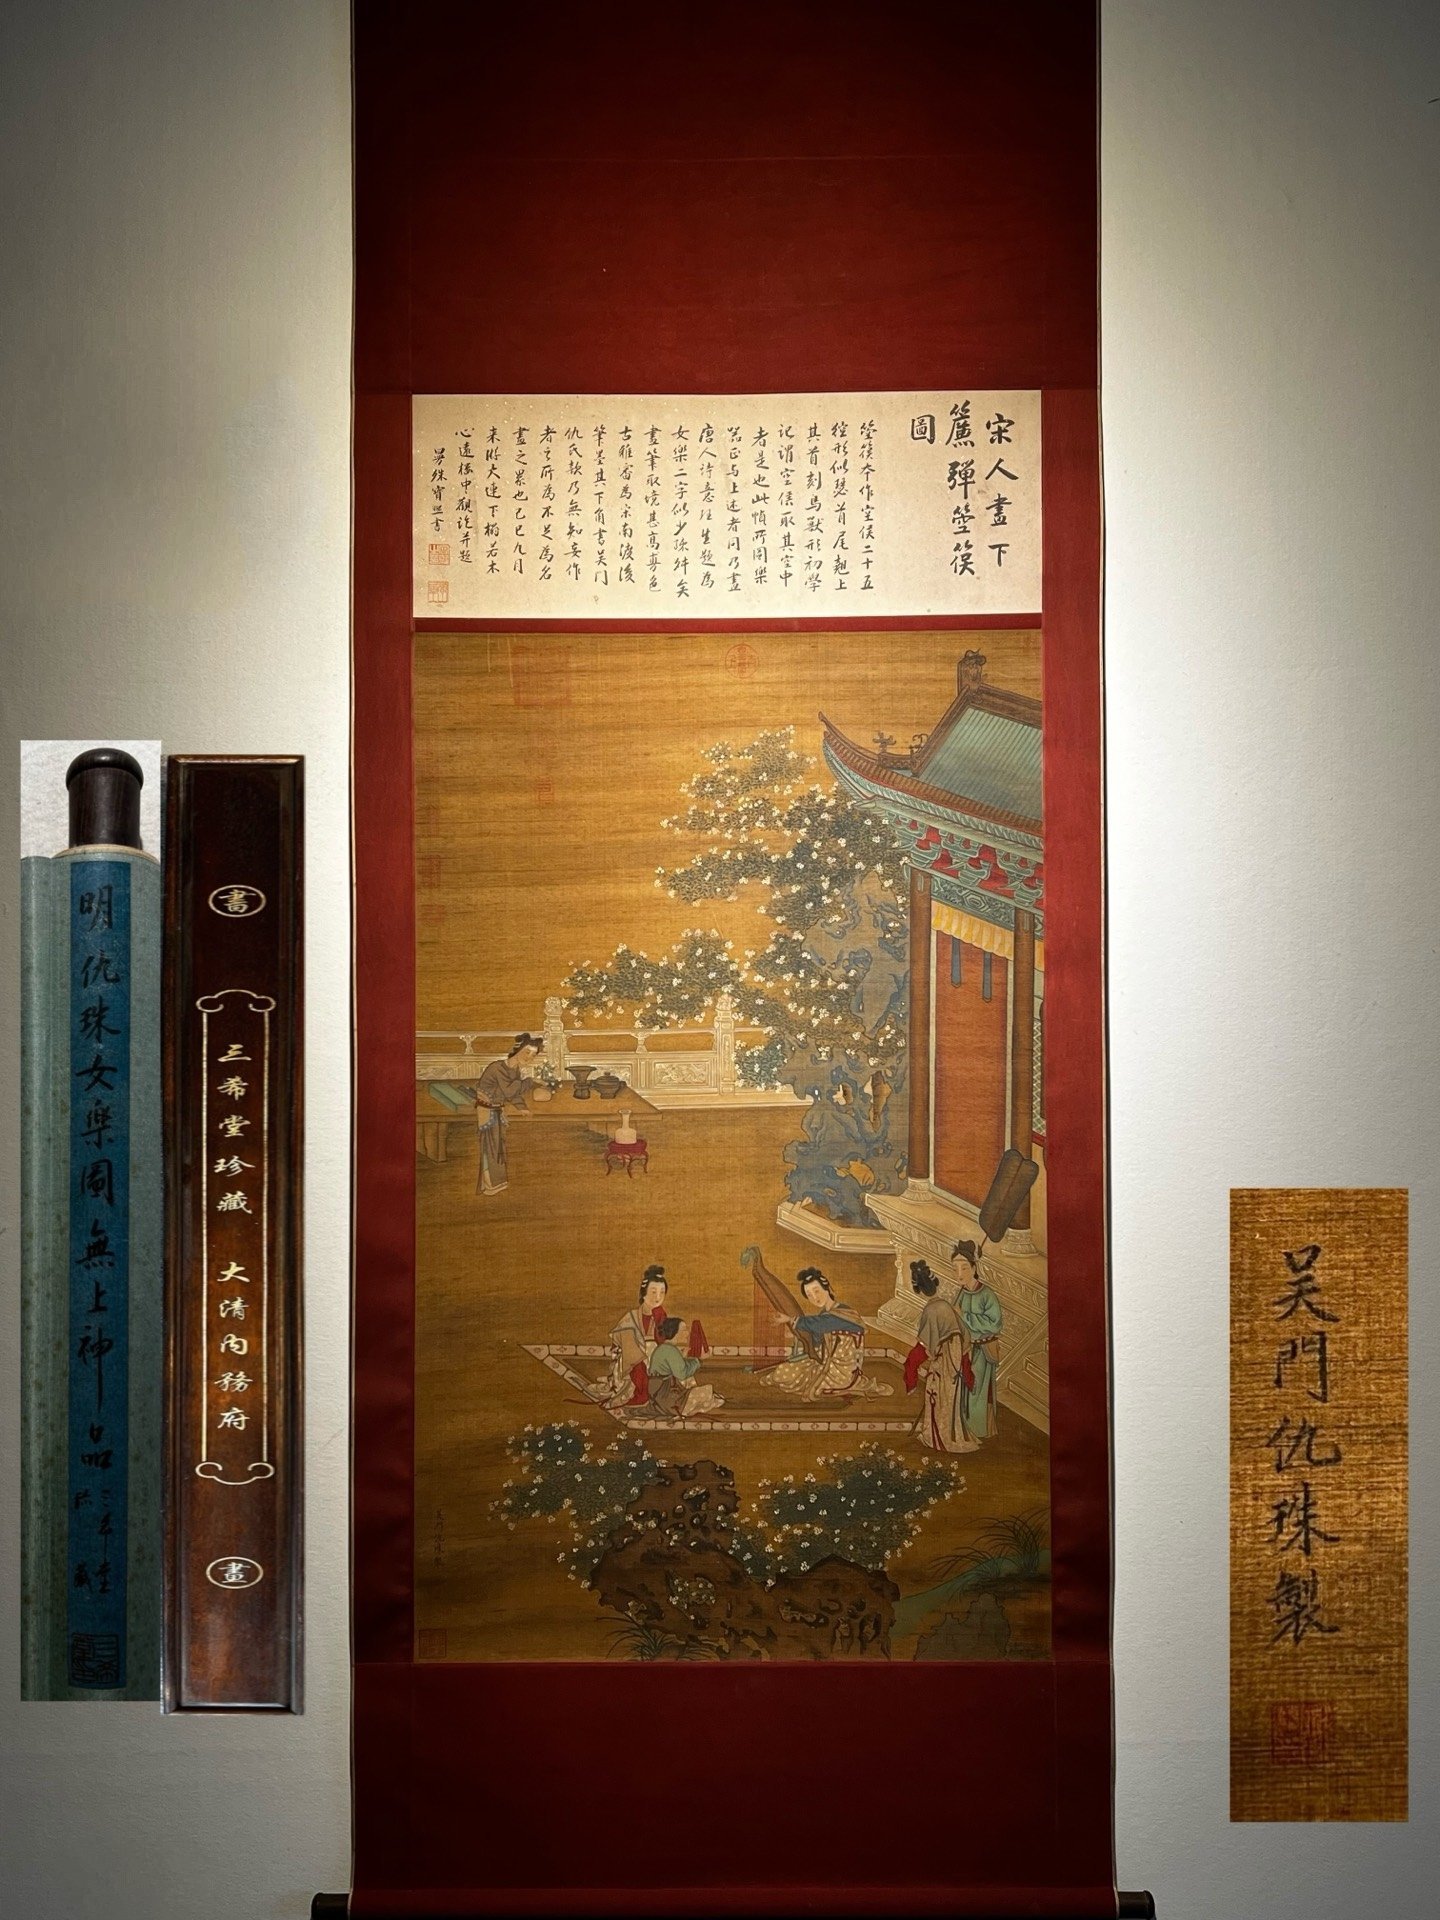 宋人畫下
簾彈箜篌
圖
箜篌本作空侯二十五
絃形似瑟首尾翹上
其首刻鳥獸形初學
記謂空侯取其空中
者是也此幀所圖樂
器正与上述者同乃畫
唐人詩意理生題為
女樂二字似少疏舛矣
畫筆取境甚高雋色
古雅審為宋南渡後
筆墨其下角書吴门
仇氏款乃無知妄作
者之所為不足為名
畫之累也己巳九月
来游大連下榻若木
心遠樓中觀訖并題
勞殊寶熙書
吴門仇珠製
明仇珠女樂圖無上神品
三希堂
珍藏
畫
三希堂珍藏 大清内務府
畫
吴門仇珠製